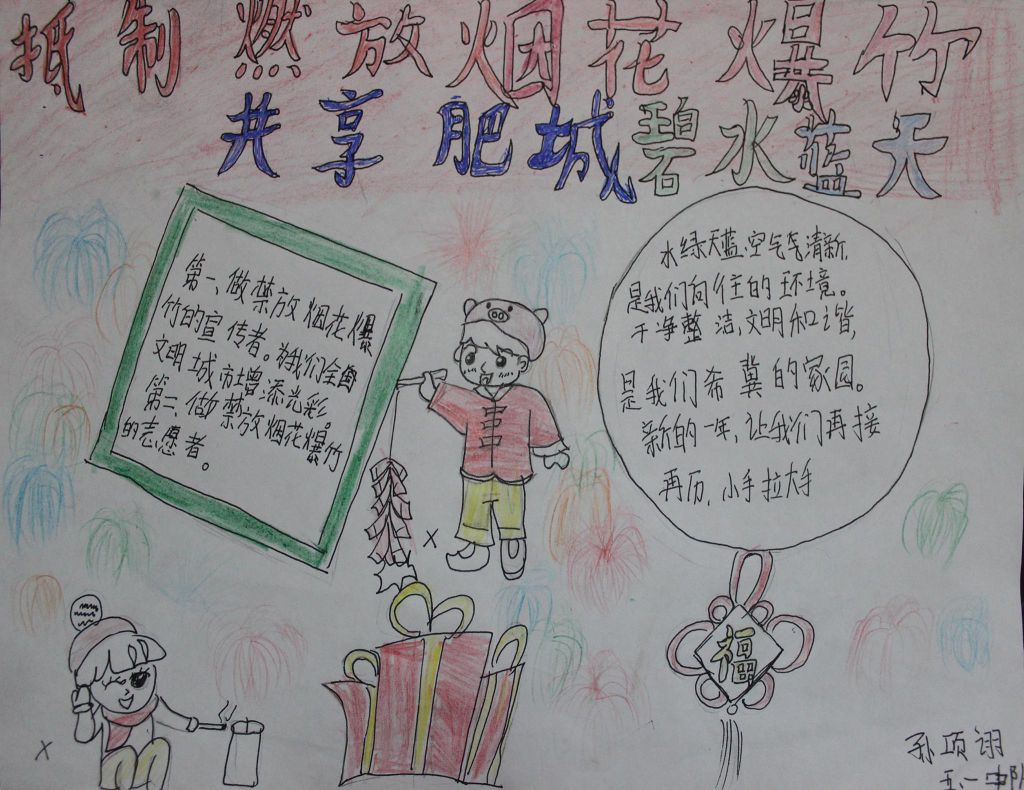 抵制燃放烟花爆竹
共享肥城碧水蓝天
第一、做禁放烟花爆
竹的宣传者。为我们全国
文明城市增添光彩。
第二、做禁放烟花爆竹
的志愿者。
水绿天蓝、空气清新,
是我们向往的环境。
干净整洁,文明和谐,
是我们希冀的家园。
新的一年,让我们再接
再历,小手拉大手
福
x
x
孙项诩
五、一中队